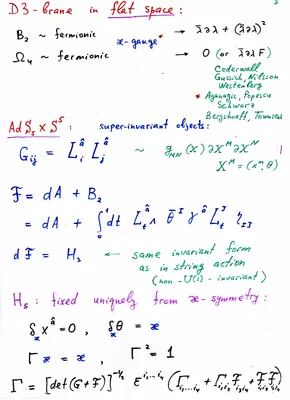 D3-brane in flat space:
B₂ ~ fermionic → λ̄∂λ + (λ̄∂λ)²
æ-gauge
Ω₄ ~ fermionic → 0 (or λ̄∂λ F)
Cederwall
Gussich, Nilsson
Westenberg
• Aganagic, Popescu
Schwarz
Bergshoeff, Townsend
AdS₅ × S⁵: super-invariant objects:
G_ij = L_i^â L_j^â ~ g_MN(X) ∂X^M ∂X^N
X^M = (x^m, θ)
F = dA + B₂
= dA + ∫₀¹ dt L_t^â ∧ θ̄^I γ^â L_t^J η_IJ
dF = H₃ ← same invariant form
as in string action
(non-U(1)-invariant)
H₅: fixed uniquely from æ-symmetry:
δ_æ x^â = 0, δ_æ θ = æ
Γ æ = æ, Γ² = 1